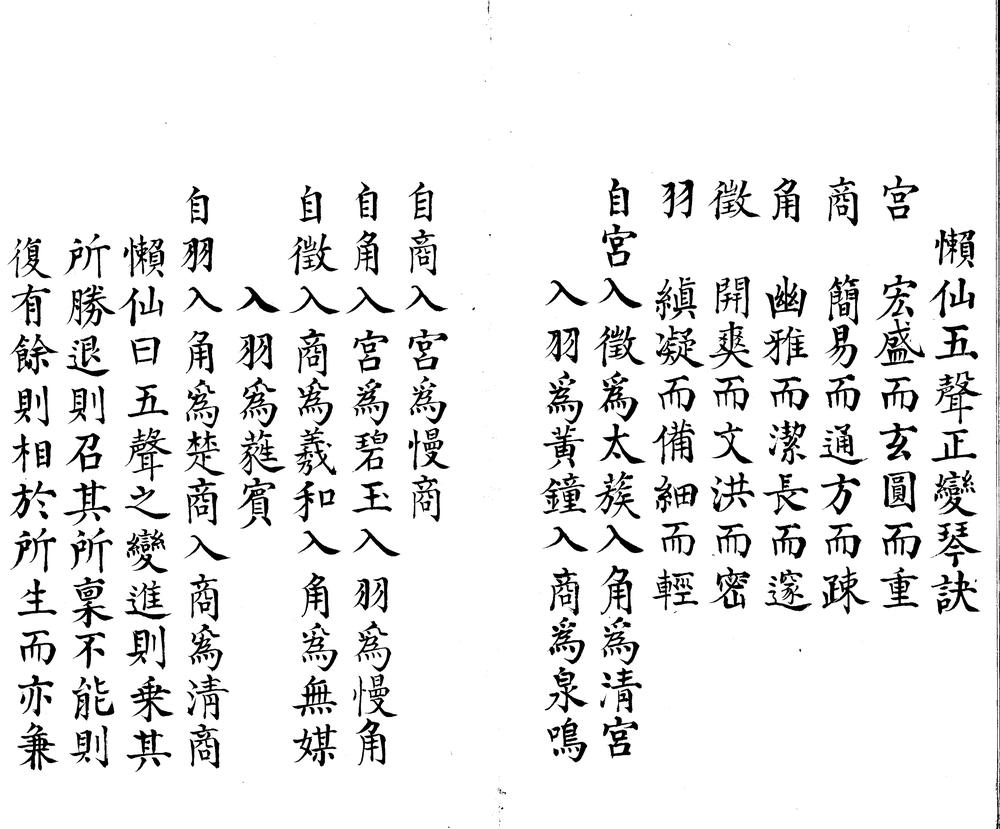 懶仙五聲正變琴訣
宮　宏盛而玄圓而重
商　簡易而通方而疎
角　幽雅而潔長而邃
徵　開爽而文洪而密
羽　縝凝而備細而輕
自宮入徵爲太蔟入角爲清宮
入羽爲黃鐘入商爲泉鳴
自商入宮爲慢商
自角入宮爲碧玉入羽爲慢角
自徵入商爲羲和入角爲無媒
入羽爲蕤賓
自羽入角爲楚商入商爲清商
懶仙曰五聲之變進則乗其
所勝退則召其所稟不能則
復有餘則相於所生而亦兼